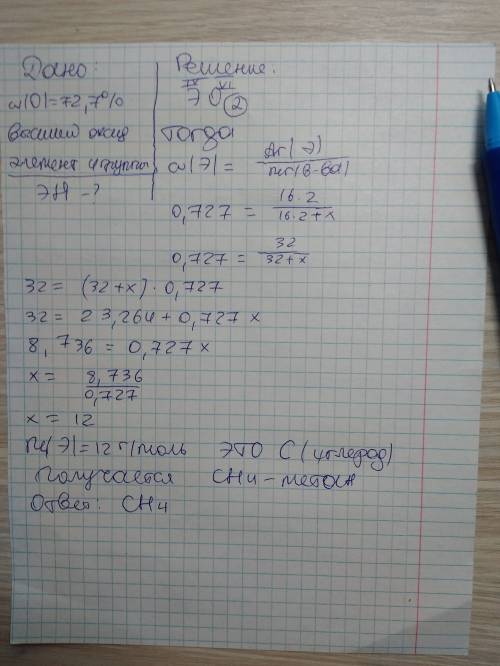 Дано:
ω(O)=72,7%
Высший оксид
элемент 4 группы
ЭH -?
Решение.
IV VI
Э O2
тогда
ω(Э)= Ar(Э) / Mr(в-ва)
0,727 = 16·2 / 16·2+x
0,727 = 32 / 32+x
32= (32+x)·0,727
32= 23,264+0,727x
8,736=0,727x
x= 8,736 / 0,727
x=12
M(Э)=12 г/моль ЭТО C (углерод)
Получается CH4-метан
Ответ: CH4